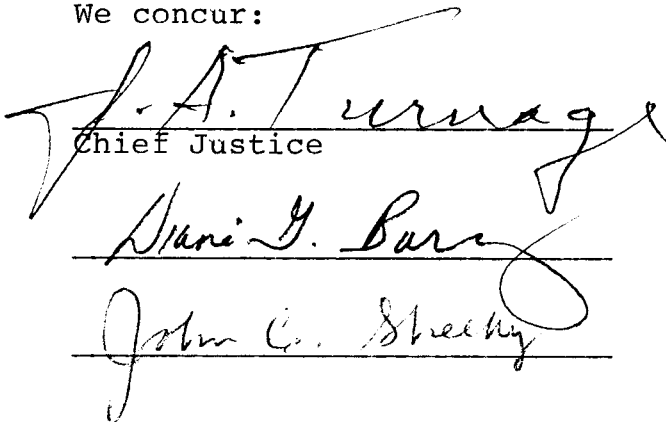 We concur:
J. A. Turnage
Chief Justice
Diane G. Barz
John C. Sheehy